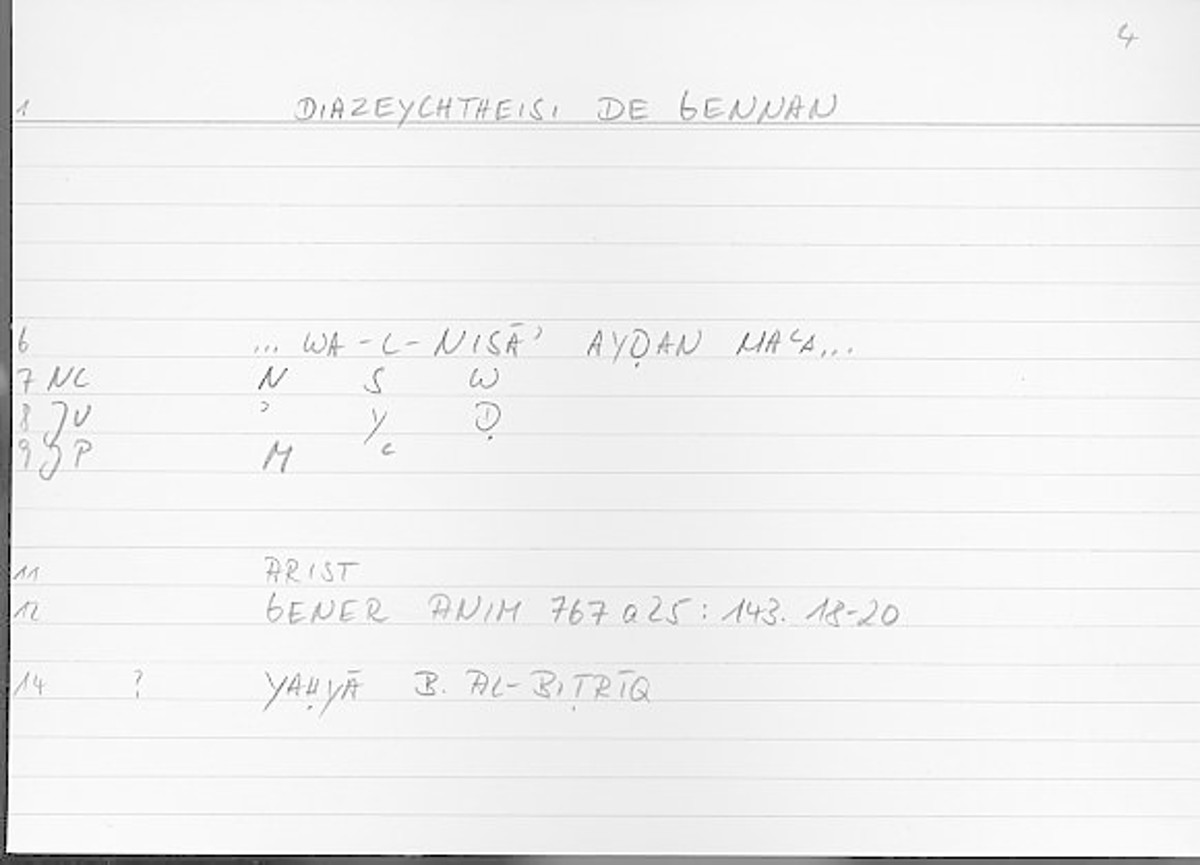 4
1 DIAZEYCHTHEISI DE GENNAN
6 ... WA-L-NISĀʾ AYḌAN MAʿA...
7 NC N S W
8 JU ʾ Y Ḍ
9 JP M ʿ
11 ARIST
12 GENER ANIM 767 a 25 : 143. 18-20
14 ? YAḤYĀ B. AL-BIṬRĪQ